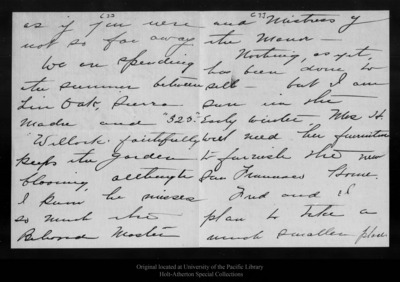 (32
as if you were
not so far away
We are spending
the summer between
Live Oak, Sierra
Madre and "325."
Willock faithfully
keeps the garden
blooming, although
I know he misses
so much the
Beloved Master
(33
and Mistress of
the Manor –
Nothing, as yet,
has been done to
sell – but I am
sure in the
Early winter, Mrs H.
will need her furniture
to furnish the new
San Francisco home.
Fred and I
plan to take a
much smaller place
Original located at University of the Pacific Library
Holt-Atherton Special Collections